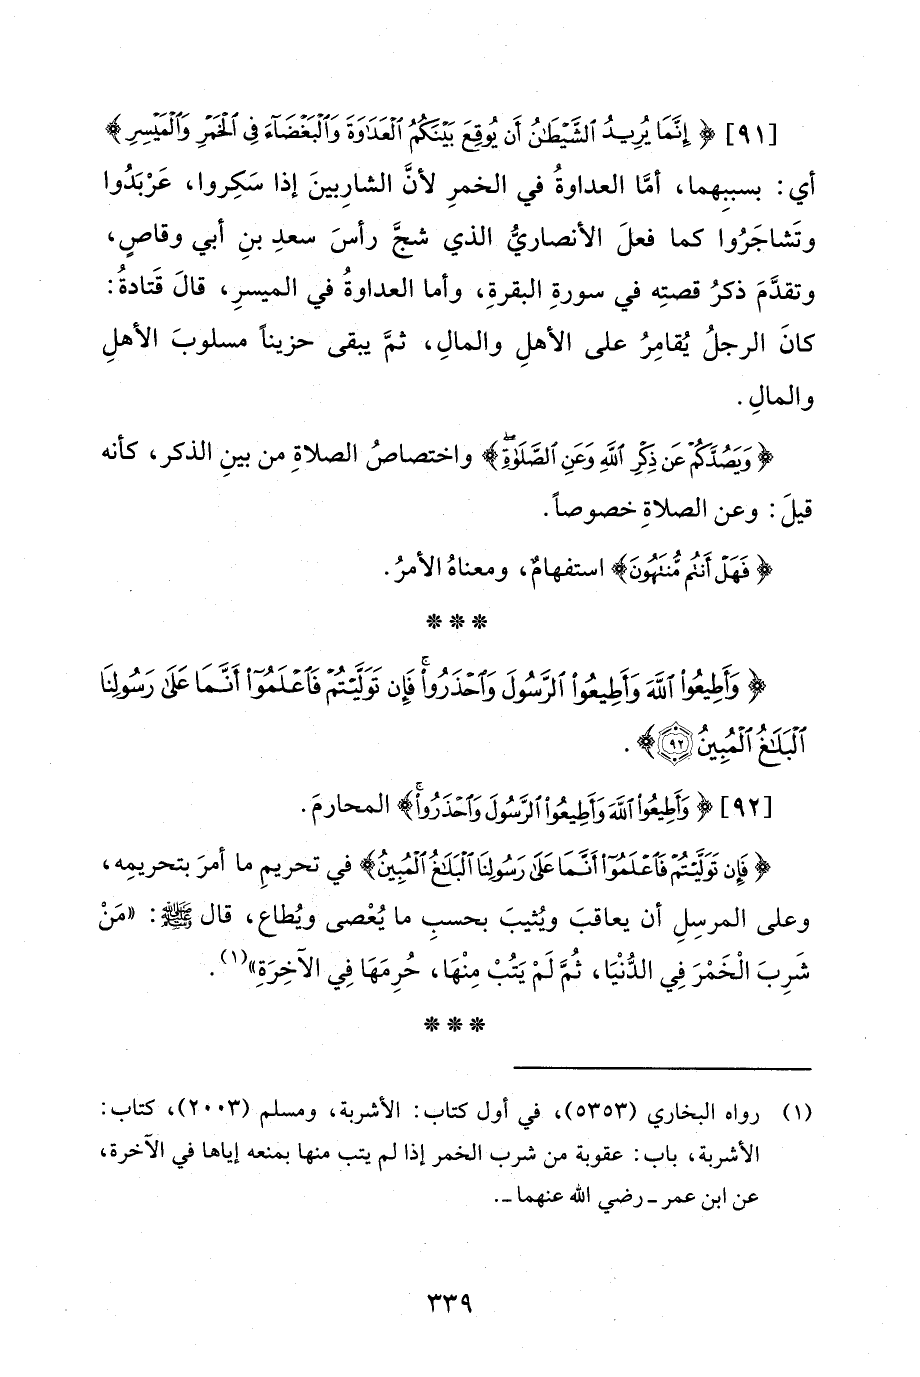 [٩١] ﴿ إِنَّمَا يُرِيدُ الشَّيْطَٰنُ أَن يُوقِعَ بَيْنَكُمُ الْعَدَاوَةَ وَالْبَغْضَآءَ فِي الْخَمْرِ وَالْمَيْسِرِ ﴾
أي: بسببِهما، أمَّا العداوةُ في الخمرِ لأنَّ الشاربينَ إذا سَكِروا، عَرْبَدُوا
وتَشاجَرُوا كما فعلَ الأنصاريُّ الذي شجَّ رأسَ سعدِ بنِ أبي وقاصٍ،
وتقدَّمَ ذكرُ قصتِه في سورةِ البقرةِ، وأما العداوةُ في الميسرِ، قالَ قَتادةُ:
كانَ الرجلُ يُقامِرُ على الأهلِ والمالِ، ثمَّ يبقى حزيناً مسلوبَ الأهلِ
والمالِ.
﴿ وَيَصُدَّكُمْ عَن ذِكْرِ اللَّهِ وَعَنِ الصَّلَوٰةِۖ ﴾ واختصاصُ الصلاةِ من بينِ الذكر، كأنه
قيلَ: وعن الصلاةِ خصوصاً.
﴿ فَهَلْ أَنتُم مُّنتَهُونَ ﴾ استفهامٌ، ومعناهُ الأمرُ.
* * *
﴿ وَأَطِيعُوا۟ اللَّهَ وَأَطِيعُوا۟ الرَّسُولَ وَاحْذَرُوا۟ۚ فَإِن تَوَلَّيْتُمْ فَاعْلَمُوٓا۟ أَنَّمَا عَلَىٰ رَسُولِنَا
الْبَلَٰغُ الْمُبِينُ ٩٢ ﴾.
[٩٢] ﴿ وَأَطِيعُوا۟ اللَّهَ وَأَطِيعُوا۟ الرَّسُولَ وَاحْذَرُوا۟ۚ ﴾ المحارمَ.
﴿ فَإِن تَوَلَّيْتُمْ فَاعْلَمُوٓا۟ أَنَّمَا عَلَىٰ رَسُولِنَا الْبَلَٰغُ الْمُبِينُ ﴾ في تحريمِ ما أمرَ بتحريمِه،
وعلى المرسِلِ أن يعاقبَ ويُثيبَ بحسبِ ما يُعْصى ويُطاع، قال ﷺ: «مَنْ
شَرِبَ الْخَمْرَ فِي الدُّنْيَا، ثُمَّ لَمْ يَتُبْ مِنْهَا، حُرِمَهَا فِي الآخِرَةِ»(١).
* * *
(١) رواه البخاري (٥٢٥٣)، في أول كتاب: الأشربة، ومسلم (٢٠٠٣)، كتاب:
الأشربة، باب: عقوبة من شرب الخمر إذا لم يتب منها بمنعه إياها في الآخرة،
عن ابن عمر ـ رضي الله عنهما ـ.
٣٣٩